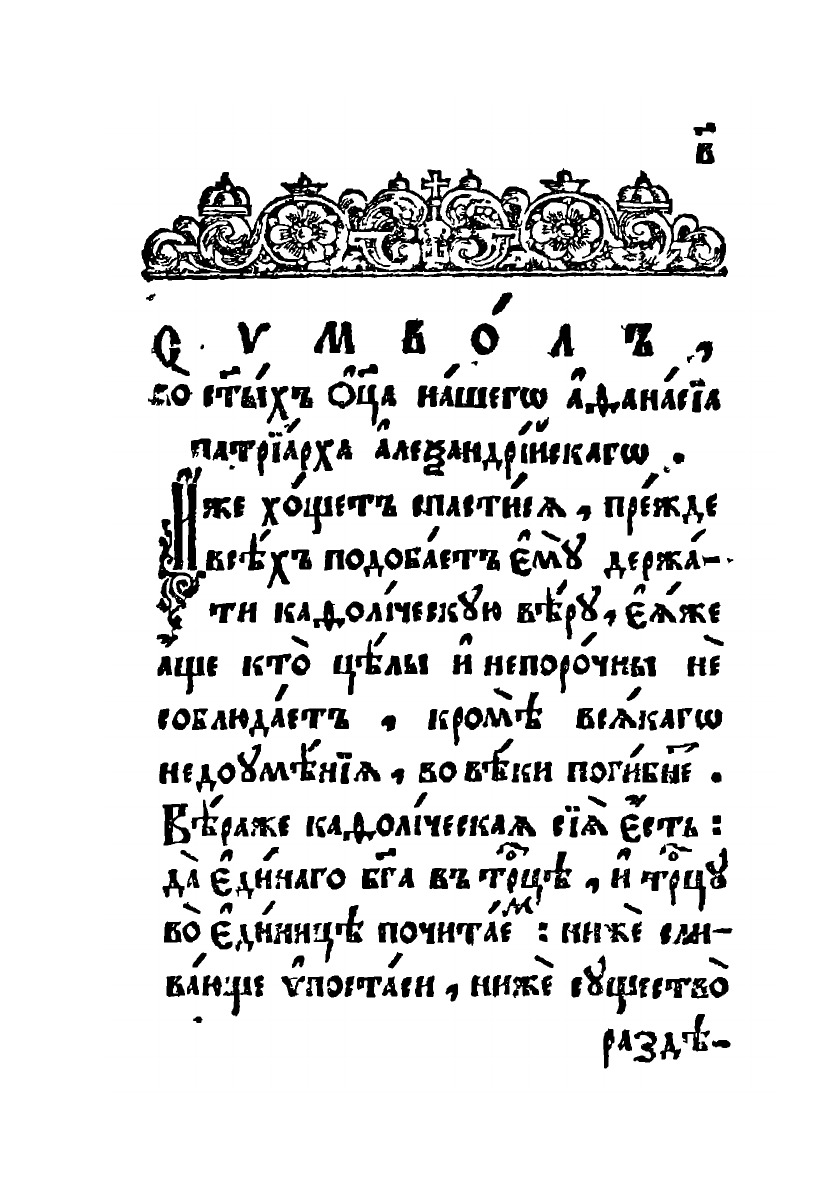 в҃
Сѵмво́лъ,
во ст҃ы́хъ Ѻ҆ц҃а на́шегѡ а҆ѳана́сїа
патрїа́рха а҆леѯандрі́йскагѡ.
И҆́же хо́щетъ спасти́сѧ, пре́жде
всѣ́хъ подоба́етъ є҆мꙋ̀ держа́-
ти каѳолі́ческꙋю вѣ́рꙋ, є҆ѧ́же
а҆́ще кто̀ цѣ́лы и҆ непоро́чны нѐ
соблюда́етъ, кромѣ̀ всѧ́кагѡ
недоꙋмѣ́нїѧ, во вѣ́ки поги́бнет.
Вѣ́раже каѳолі́ческаѧ сїѧ̀ є҆́сть:
да̀ є҆ди́наго бг҃а въ трⷪ҇цѣ, и҆ трⷪ҇цꙋ
во̀ є҆ди́ницѣ почита́еⷨ: нижѐ сли-
ва́юще ѵ҆поста́си, нижѐ сꙋ́щество̀
раздѣ́-